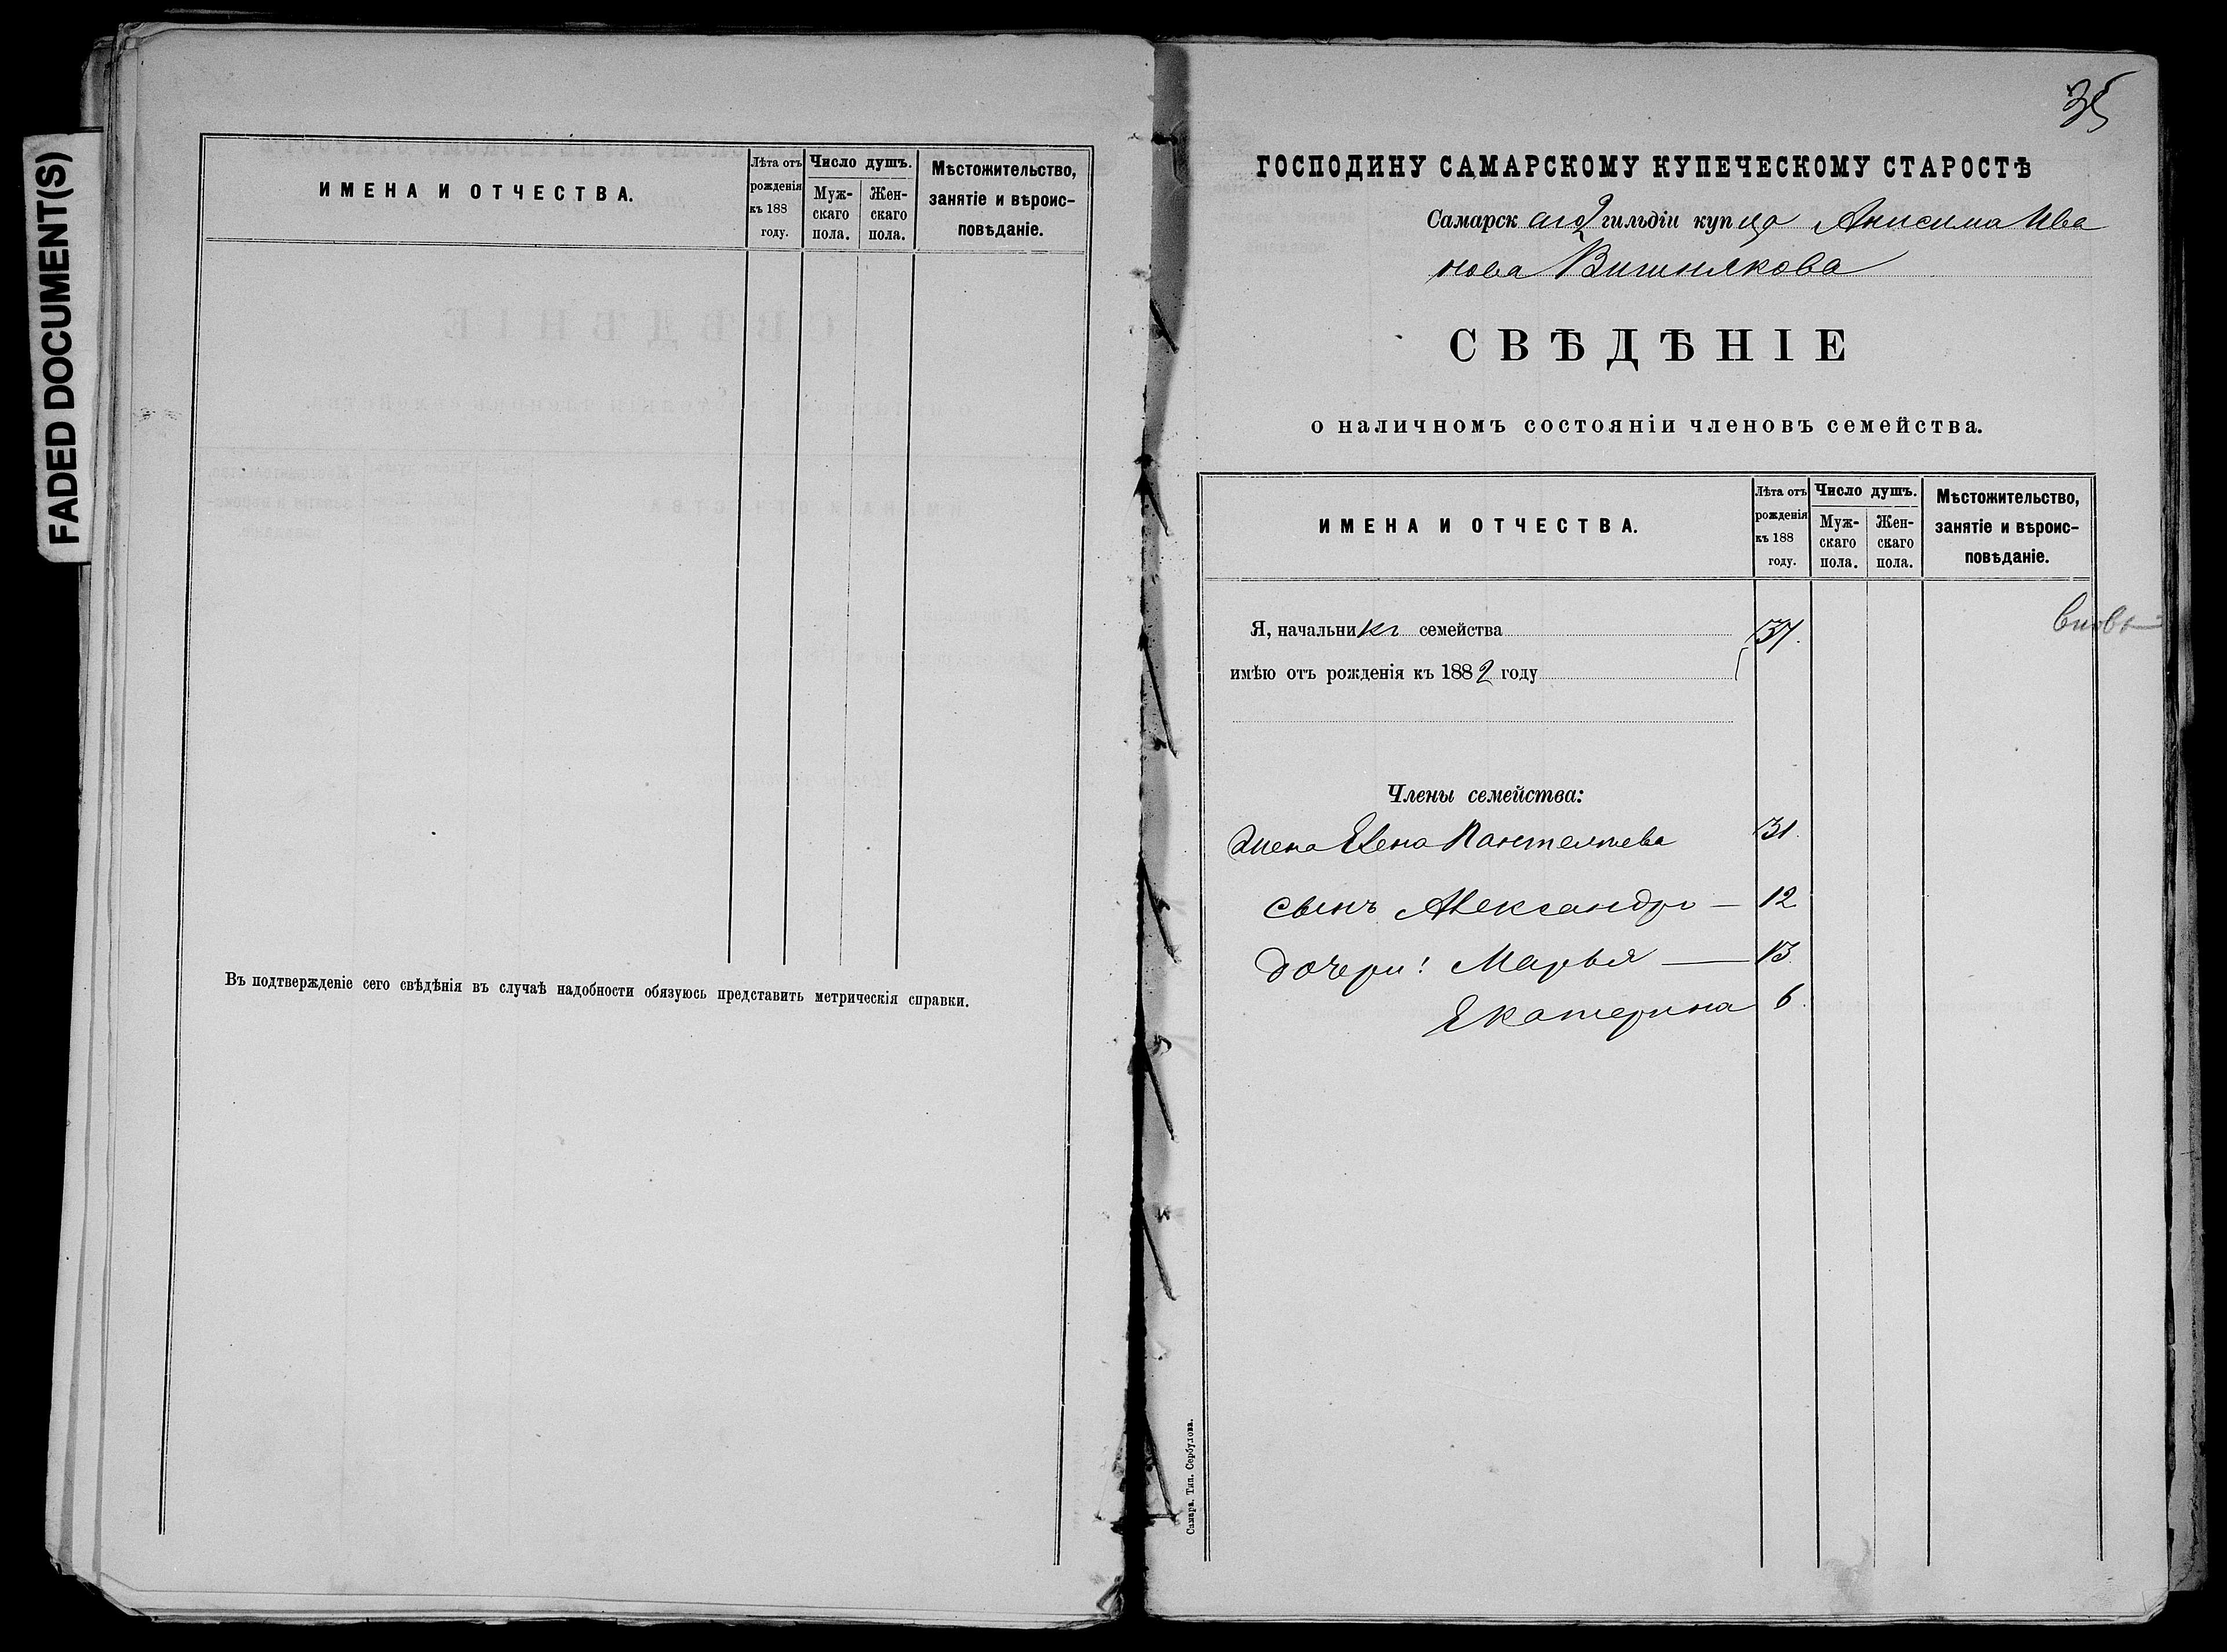 FADED DOCUMENT(S)
ИМЕНА И ОТЧЕСТВА.
Лѣта отъ рожденія къ 188 году.
Число душъ.
Мужскаго пола.
Женскаго пола.
Мѣстожительство, занятіе и вѣроисповѣданіе.
Въ подтвержденіе сего свѣдѣнія въ случаѣ надобности обязуюсь представить метрическія справки.
35
ГОСПОДИНУ САМАРСКОМУ КУПЕЧЕСКОМУ СТАРОСТѢ
Самарскаго 2 гильдіи купца Анисима Ива
нова Вишнякова
СВѢДѢНІЕ
о наличномъ состояніи членовъ семейства.
ИМЕНА И ОТЧЕСТВА.
Лѣта отъ рожденія къ 188 году.
Число душъ.
Мужскаго пола.
Женскаго пола.
Мѣстожительство, занятіе и вѣроисповѣданіе.
Я, начальникъ семейства 37.
вновь
имѣю отъ рожденія къ 1882 году
Члены семейства:
жена Елена Пантелѣева 31.
сынъ Александръ — 12
дочери: Марья — 13
Екатерина 6.
Самара. Тип. Сербулова.